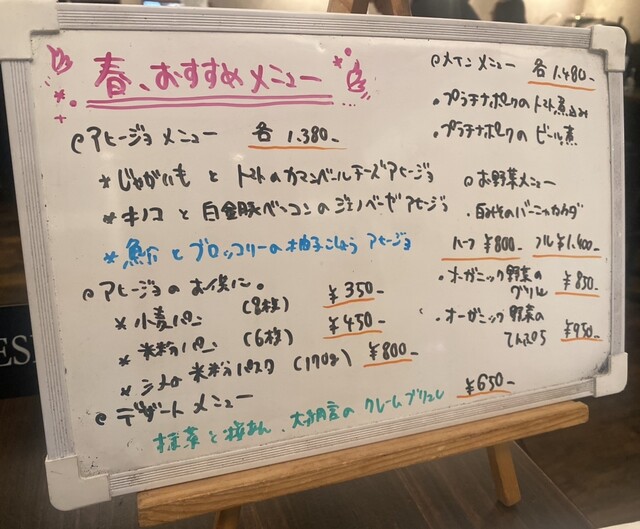 春、おすすめメニュー
アヒージョメニュー 各 1.380-
*じゃがいもとトマトのカマンベールチーズアヒージョ
*キノコと白金豚ベーコンのジェノベーゼアヒージョ
*鮪とブロッコリーの柚子こしょうアヒージョ
アヒージョのお供に。
*小麦パン (8枚) ¥350-
*米粉パン (6枚) ¥450-
*米粉パスタ (170g) ¥800-
デザートメニュー ¥650-
抹茶と桜あん、大納言のクレームブリュレ
メインメニュー 各1.480-
・プラチナポークのトマト煮込み
・プラチナポークのビール煮
お野菜メニュー
・白みそのバーニャカウダ
ハーフ ¥800- フル¥1.400-
・オーガニック野菜のグリル ¥850-
・オーガニック野菜の
てんぷら ¥950-